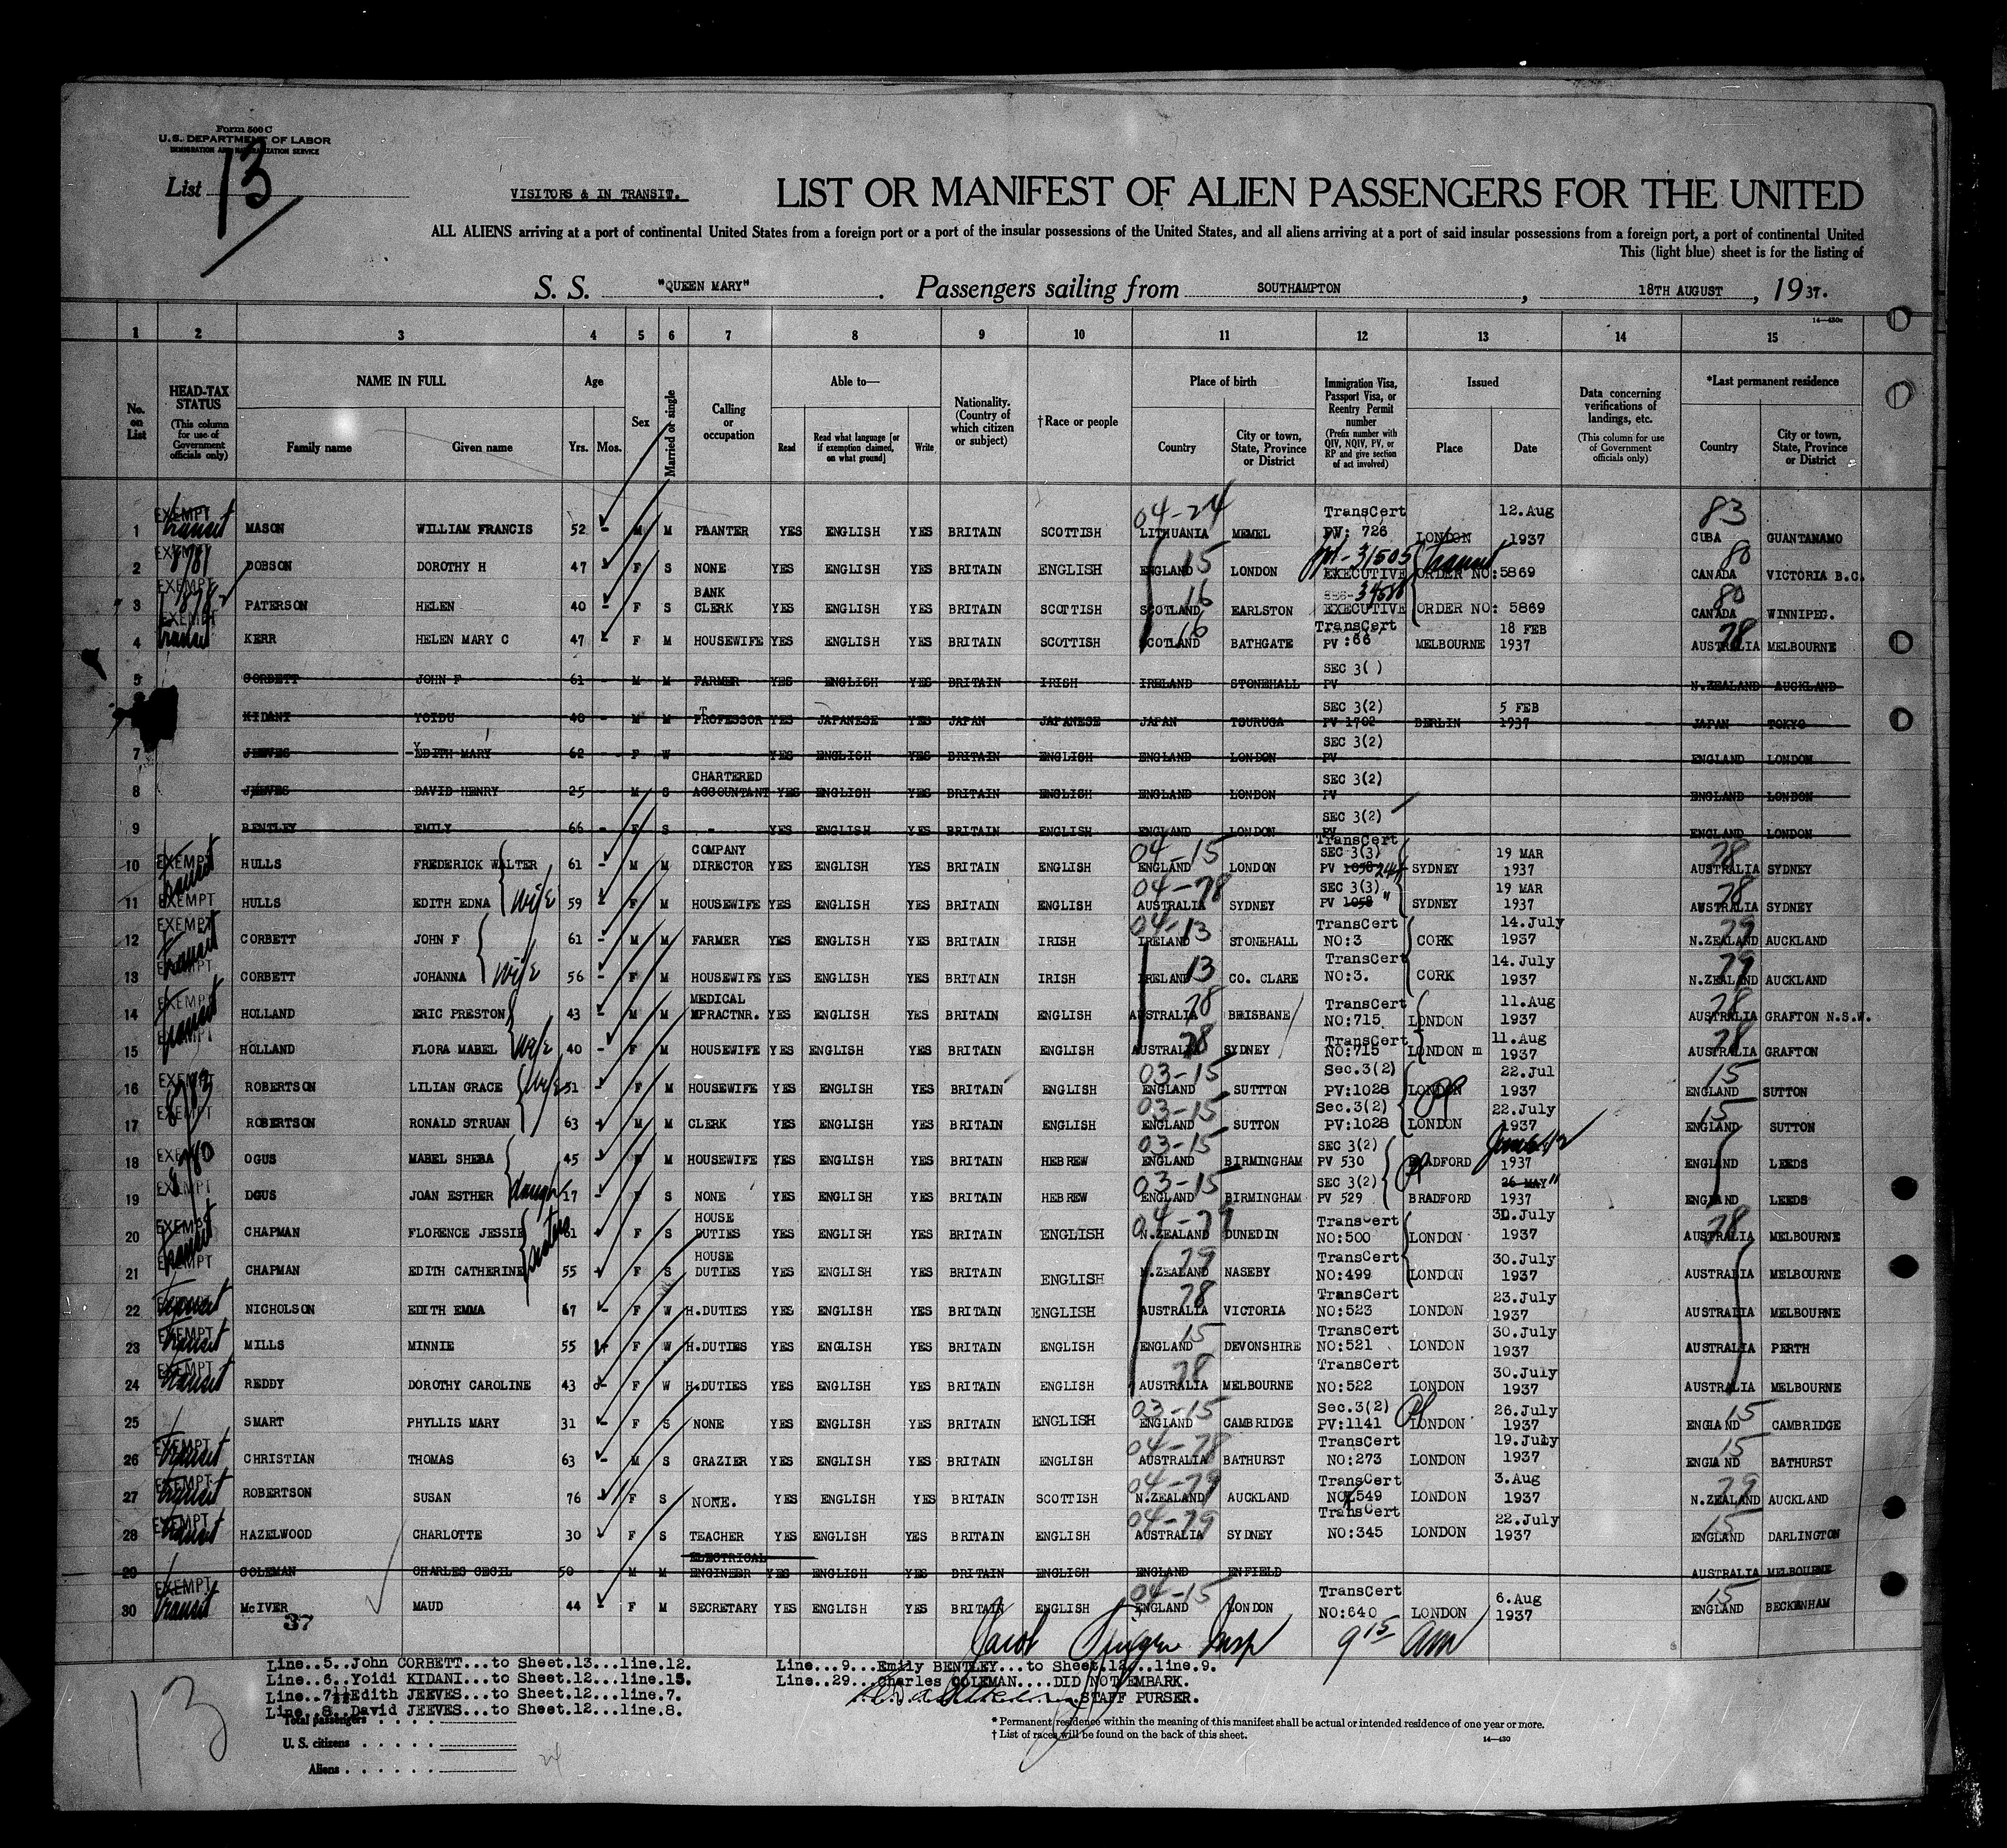 Form 500 C
U. S. DEPARTMENT OF LABOR
IMMIGRATION AND NATURALIZATION SERVICE
List 13
VISITORS & IN TRANSIT.
LIST OR MANIFEST OF ALIEN PASSENGERS FOR THE UNITED
ALL ALIENS arriving at a port of continental United States from a foreign port or a port of the insular possessions of the United States, and all aliens arriving at a port of said insular possessions from a foreign port, a port of continental United
This (light blue) sheet is for the listing of
S. S. "QUEEN MARY" . Passengers sailing from SOUTHAMPTON , 18TH AUGUST , 19 37.
14—430c
1 2 3 4 5 6 7 8 9 10 11 12 13 14 15
No. on List
HEAD-TAX STATUS (This column for use of Government officials only)
NAME IN FULL Family name Given name
Age Yrs. Mos.
Sex
Married or single
Calling or occupation
Able to— Read Read what language [or if exemption claimed, on what ground] Write
Nationality. (Country of which citizen or subject)
†Race or people
Place of birth Country City or town, State, Province or District
Immigration Visa, Passport Visa, or Reentry Permit number (Prefix number with QIV, NQIV, PV, or RP and give section of act involved)
Issued Place Date
Data concerning verifications of landings, etc. (This column for use of Government officials only)
*Last permanent residence Country City or town, State, Province or District
1 EXEMPT transit MASON WILLIAM FRANCIS 52 - M M PLANTER YES ENGLISH YES BRITAIN SCOTTISH 04-24 LITHUANIA MEMEL TransCert PV: 726 LONDON 12.Aug 1937 83 CUBA GUANTANAMO
2 EXEMPT 8781 DOBSON DOROTHY H 47 - F S NONE YES ENGLISH YES BRITAIN ENGLISH 15 ENGLAND LONDON 31505 EXECUTIVE ORDER NO:5869 transit 80 CANADA VICTORIA B.C.
3 EXEMPT PATERSON HELEN 40 - F S BANK CLERK YES ENGLISH YES BRITAIN SCOTTISH 16 SCOTLAND EARLSTON EXECUTIVE ORDER NO: 5869 80 CANADA WINNIPEG.
4 EXEMPT transit KERR HELEN MARY C 47 - F M HOUSEWIFE YES ENGLISH YES BRITAIN SCOTTISH 16 SCOTLAND BATHGATE TransCert PV :66 MELBOURNE 18 FEB 1937 78 AUSTRALIA MELBOURNE
5 CORBETT JOHN F 61 - M M FARMER YES ENGLISH YES BRITAIN IRISH IRELAND STONEHALL SEC 3( ) PV N.ZEALAND AUCKLAND
KIDANI YOIDU 40 - M M PROFESSOR YES JAPANESE YES JAPAN JAPANESE JAPAN TSURUGA SEC 3(2) PV 1702 BERLIN 5 FEB 1937 JAPAN TOKYO
7 JEEVES EDITH MARY 62 - F W YES ENGLISH YES BRITAIN ENGLISH ENGLAND LONDON SEC 3(2) PV ENGLAND LONDON
8 JEEVES DAVID HENRY 25 M S CHARTERED ACCOUNTANT YES ENGLISH YES BRITAIN ENGLISH ENGLAND LONDON SEC 3(2) PV ENGLAND LONDON
9 BENTLEY EMILY 66 - F S - YES ENGLISH YES BRITAIN ENGLISH ENGLAND LONDON SEC 3(2) PV ENGLAND LONDON
10 EXEMPT transit HULLS FREDERICK WALTER 61 - M M COMPANY DIRECTOR YES ENGLISH YES BRITAIN ENGLISH 04-15 ENGLAND LONDON TransCert SEC 3(3) PV 1058 244 SYDNEY 19 MAR 1937 78 AUSTRALIA SYDNEY
11 EXEMPT HULLS EDITH EDNA wife 59 - F M HOUSEWIFE YES ENGLISH YES BRITAIN ENGLISH 04-78 AUSTRALIA SYDNEY SEC 3(3) PV 1058 " SYDNEY 19 MAR 1937 78 AUSTRALIA SYDNEY
12 EXEMPT transit CORBETT JOHN F 61 - M M FARMER YES ENGLISH YES BRITAIN IRISH 04-13 IRELAND STONEHALL TransCert NO:3 CORK 14.July 1937 79 N.ZEALAND AUCKLAND
13 EXEMPT CORBETT JOHANNA wife 56 - F M HOUSEWIFE YES ENGLISH YES BRITAIN IRISH 13 IRELAND CO. CLARE TransCert NO:3. CORK 14.July 1937 79 N.ZEALAND AUCKLAND
14 EXEMPT transit HOLLAND ERIC PRESTON 43 - M M MEDICAL MPRACTNR. YES ENGLISH YES BRITAIN ENGLISH 78 AUSTRALIA BRISBANE TransCert NO:715 LONDON 11.Aug 1937 78 AUSTRALIA GRAFTON N.S.W.
15 EXEMPT HOLLAND FLORA MABEL wife 40 - F M HOUSEWIFE YES ENGLISH YES BRITAIN ENGLISH 78 AUSTRALIA SYDNEY TransCert NO:715 LONDON m 11.Aug 1937 78 AUSTRALIA GRAFTON
16 EXEMPT 8783 ROBERTSON LILIAN GRACE wife 51 - F M HOUSEWIFE YES ENGLISH YES BRITAIN ENGLISH 03-15 ENGLAND SUTTTON Sec.3(2) PV:1028 LONDON 22.Jul 1937 15 ENGLAND SUTTON
17 EXEMPT ROBERTSON RONALD STRUAN 63 M M CLERK YES ENGLISH YES BRITAIN ENGLISH 03-15 ENGLAND SUTTON Sec.3(2) PV:1028 LONDON 22.July 1937 15 ENGLAND SUTTON
18 EXEMPT 8780 OGUS MABEL SHEBA 45 - F M HOUSEWIFE YES ENGLISH YES BRITAIN HEBREW 03-15 ENGLAND BIRMINGHAM SEC 3(2) PV 530 BRADFORD 1937 ENGLAND LEEDS
19 EXEMPT OGUS JOAN ESTHER daugh 17 - F S NONE YES ENGLISH YES BRITAIN HEBREW 03-15 ENGLAND BIRMINGHAM SEC 3(2) PV 529 BRADFORD 26 MAY " 1937 ENGLAND LEEDS
20 EXEMPT transit CHAPMAN FLORENCE JESSIE sisters 61 F S HOUSE DUTIES YES ENGLISH YES BRITAIN ENGLISH 04-79 N.ZEALAND DUNEDIN TransCert NO:500 LONDON 30.July 1937 78 AUSTRALIA MELBOURNE
21 EXEMPT CHAPMAN EDITH CATHERINE 55 F S HOUSE DUTIES YES ENGLISH YES BRITAIN ENGLISH 79 N.ZEALAND NASEBY TransCert NO:499 LONDON 30.July 1937 AUSTRALIA MELBOURNE
22 EXEMPT transit NICHOLSON EDITH EMMA 67 - F W H.DUTIES YES ENGLISH YES BRITAIN ENGLISH 78 AUSTRALIA VICTORIA TransCert NO:523 LONDON 23.July 1937 AUSTRALIA MELBOURNE
23 EXEMPT transit MILLS MINNIE 55 F W H.DUTIES YES ENGLISH YES BRITAIN ENGLISH 15 ENGLAND DEVONSHIRE TransCert NO:521 LONDON 30.July 1937 AUSTRALIA PERTH
24 EXEMPT transit REDDY DOROTHY CAROLINE 43 - F W H.DUTIES YES ENGLISH YES BRITAIN ENGLISH 78 AUSTRALIA MELBOURNE TransCert NO:522 LONDON 30.July 1937 AUSTRALIA MELBOURNE
25 SMART PHYLLIS MARY 31 - F S NONE YES ENGLISH YES BRITAIN ENGLISH 03-15 ENGLAND CAMBRIDGE Sec.3(2) PV:1141 LONDON 26.July 1937 15 ENGLAND CAMBRIDGE
26 EXEMPT transit CHRISTIAN THOMAS 63 - M S GRAZIER YES ENGLISH YES BRITAIN ENGLISH 04-78 AUSTRALIA BATHURST TransCert NO:273 LONDON 19.July 1937 15 ENGLAND BATHURST
27 EXEMPT transit ROBERTSON SUSAN 76 F S NONE. YES ENGLISH YES BRITAIN SCOTTISH 04-79 N.ZEALAND AUCKLAND TransCert NO:549 LONDON 3.Aug 1937 79 N.ZEALAND AUCKLAND
28 EXEMPT transit HAZELWOOD CHARLOTTE 30 F S TEACHER YES ENGLISH YES BRITAIN ENGLISH 04-79 AUSTRALIA SYDNEY TransCert NO:345 LONDON 22.July 1937 15 ENGLAND DARLINGTON
29 COLEMAN CHARLES CECIL 50 - M M ELECTRICAL ENGINEER YES ENGLISH YES BRITAIN ENGLISH ENGLAND ENFIELD AUSTRALIA MELBOURNE
30 EXEMPT transit McIVER MAUD 44 - F M SECRETARY YES ENGLISH YES BRITAIN ENGLISH 04-15 ENGLAND LONDON TransCert NO:640 LONDON 6.Aug 1937 15 ENGLAND BECKENHAM
37
Jacob Insp 9 15 am
Line..5..John CORBETT...to Sheet.13...line.12.
Line..6..Yoidi KIDANI...to Sheet.12...line.15.
Line..7 Edith JEEVES...to Sheet.12...line.7.
Line..8..David JEEVES...to Sheet.12...line.8.
Line...9...Emily BENTLEY...to Sheet.12...line.9.
Line...29...Charles COLEMAN....DID NOT EMBARK.
STAFF PURSER.
13
Total passengers
U. S. citizens
Aliens 24
* Permanent residence within the meaning of this manifest shall be actual or intended residence of one year or more.
† List of races will be found on the back of this sheet.
14—430